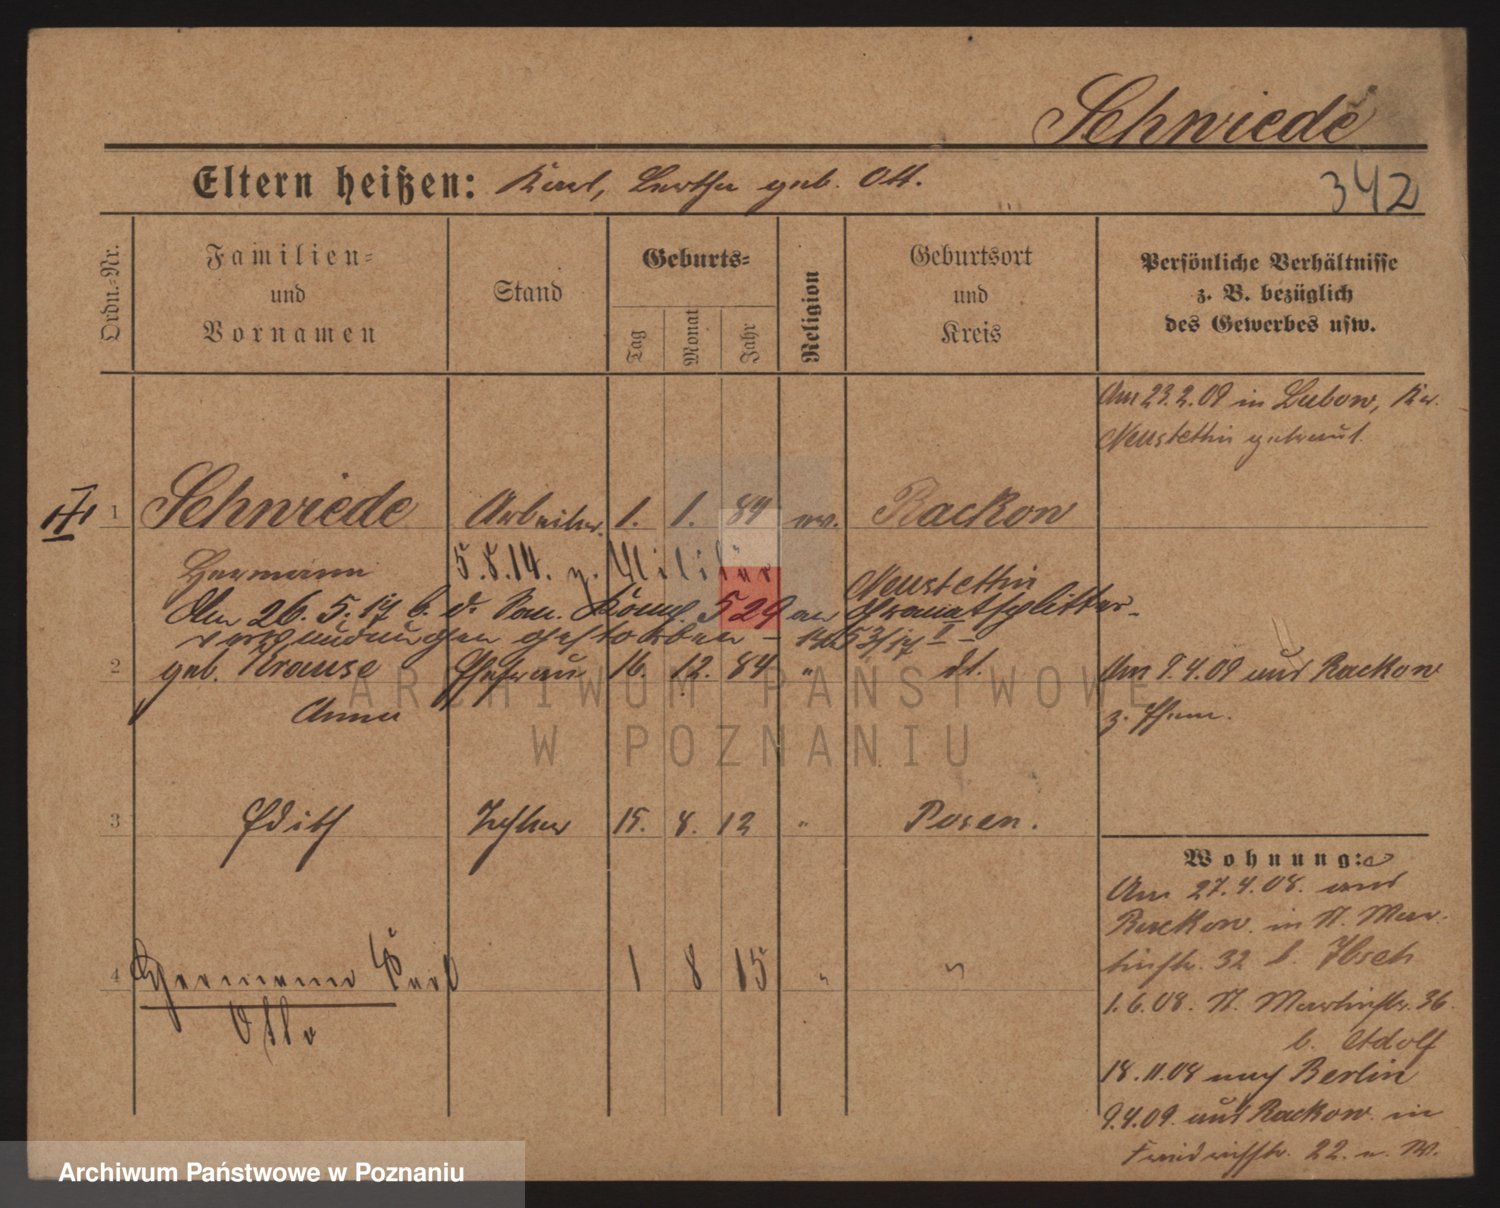 Schwiede
Eltern heißen: Karl, Bertha geb. Ott.
342
Ordn.-Nr.
Familien- und Vornamen
Stand
Geburts-
Tag
Monat
Jahr
Religion
Geburtsort und Kreis
Persönliche Verhältnisse
z. B. bezüglich
des Gewerbes usw.
Am 23.2.09 in Lubow, Kr.
Neustettin getraut.
1 Schwiede Arbeiter. 1. 1. 84 ev. Rackow
Hermann 5.8.14. z. Militär Neustettin
Am 26.5.17 b. d. San. Komp. 529 an Granatsplitter-
verwundungen gestorben
2 geb. Krause Ehefrau 16. 12. 84 " dt. Am 9.4.09 aus Rackow
Anna z. Ehem.
3 Edith Tochter 15. 8. 12 " Posen.
4 Hermann Karl 1 8 15 " "
Otto
Wohnung:
Am 27.4.08. aus
Rackow. in St. Mar-
tinstr. 32 b.
1.6.08. St. Martinstr. 36
b. Adolf
18.11.08 nach Berlin
9.4.09. aus Rackow in
22.
ARCHIWUM PAŃSTWOWE
W POZNANIU
Archiwum Państwowe w Poznaniu